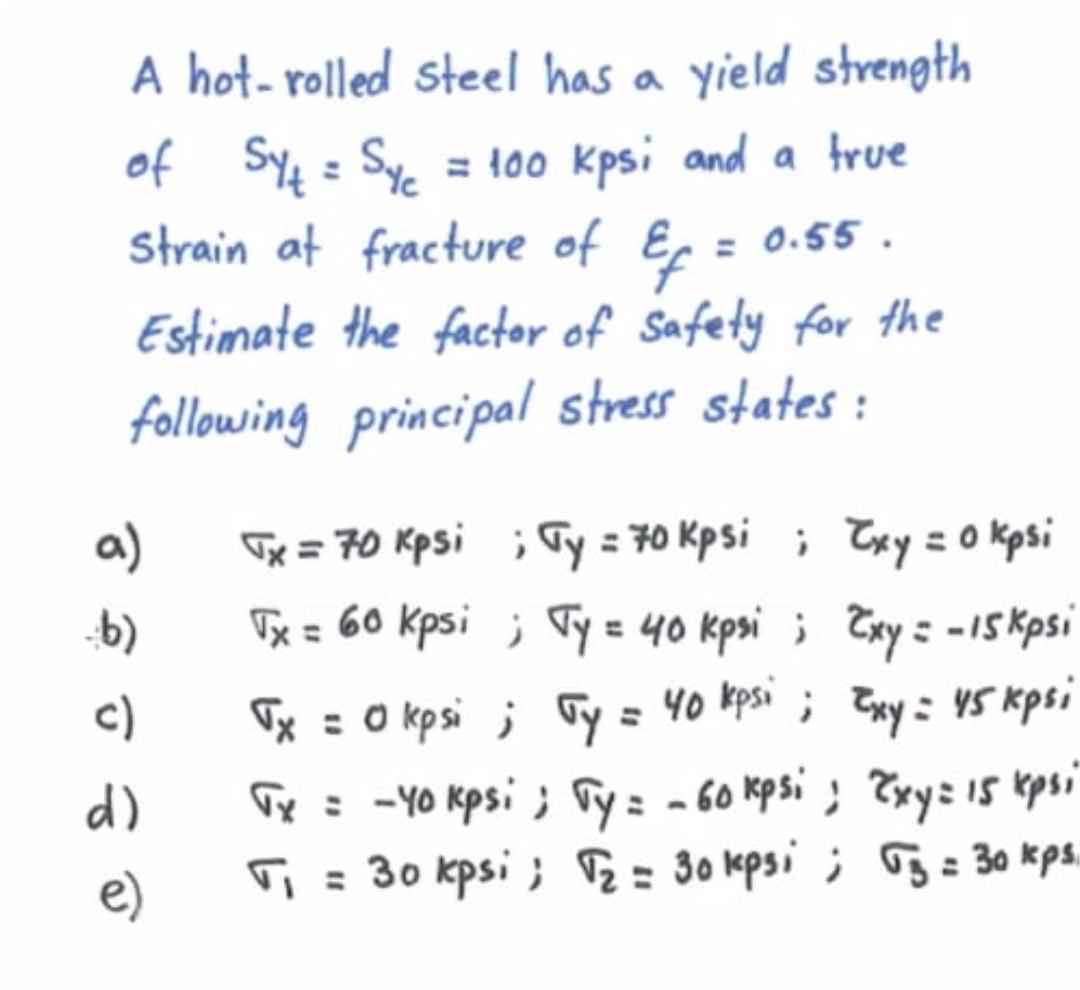 A hot-rolled steel has a yield strength
of Syt = Syc = 100 Kpsi and a true
Strain at fracture of Ɛf = 0.55 .
Estimate the factor of safety for the
following principal stress states :
a) σx = 70 Kpsi ; σy = 70 Kpsi ; τxy = 0 kpsi
b) σx = 60 Kpsi ; σy = 40 Kpsi ; τxy = -15 Kpsi
c) σx = 0 kpsi ; σy = 40 kpsi ; τxy = 45 kpsi
d) σx = -40 Kpsi ; σy = -60 kpsi ; τxy = 15 kpsi
e) σ1 = 30 kpsi ; σ2 = 30 kpsi ; σ3 = 30 kps